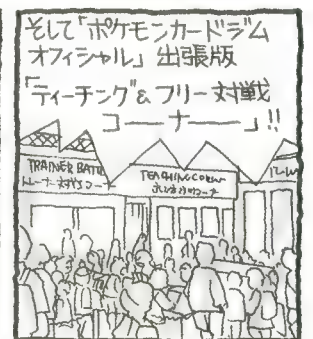 そして「ポケモンカードジム
オフィシャル」出張版
「ティーチング&フリー対戦
コーナー」!!
TRAINER BATTL
トレーナー対戦コーナー
TEACHING CORNER